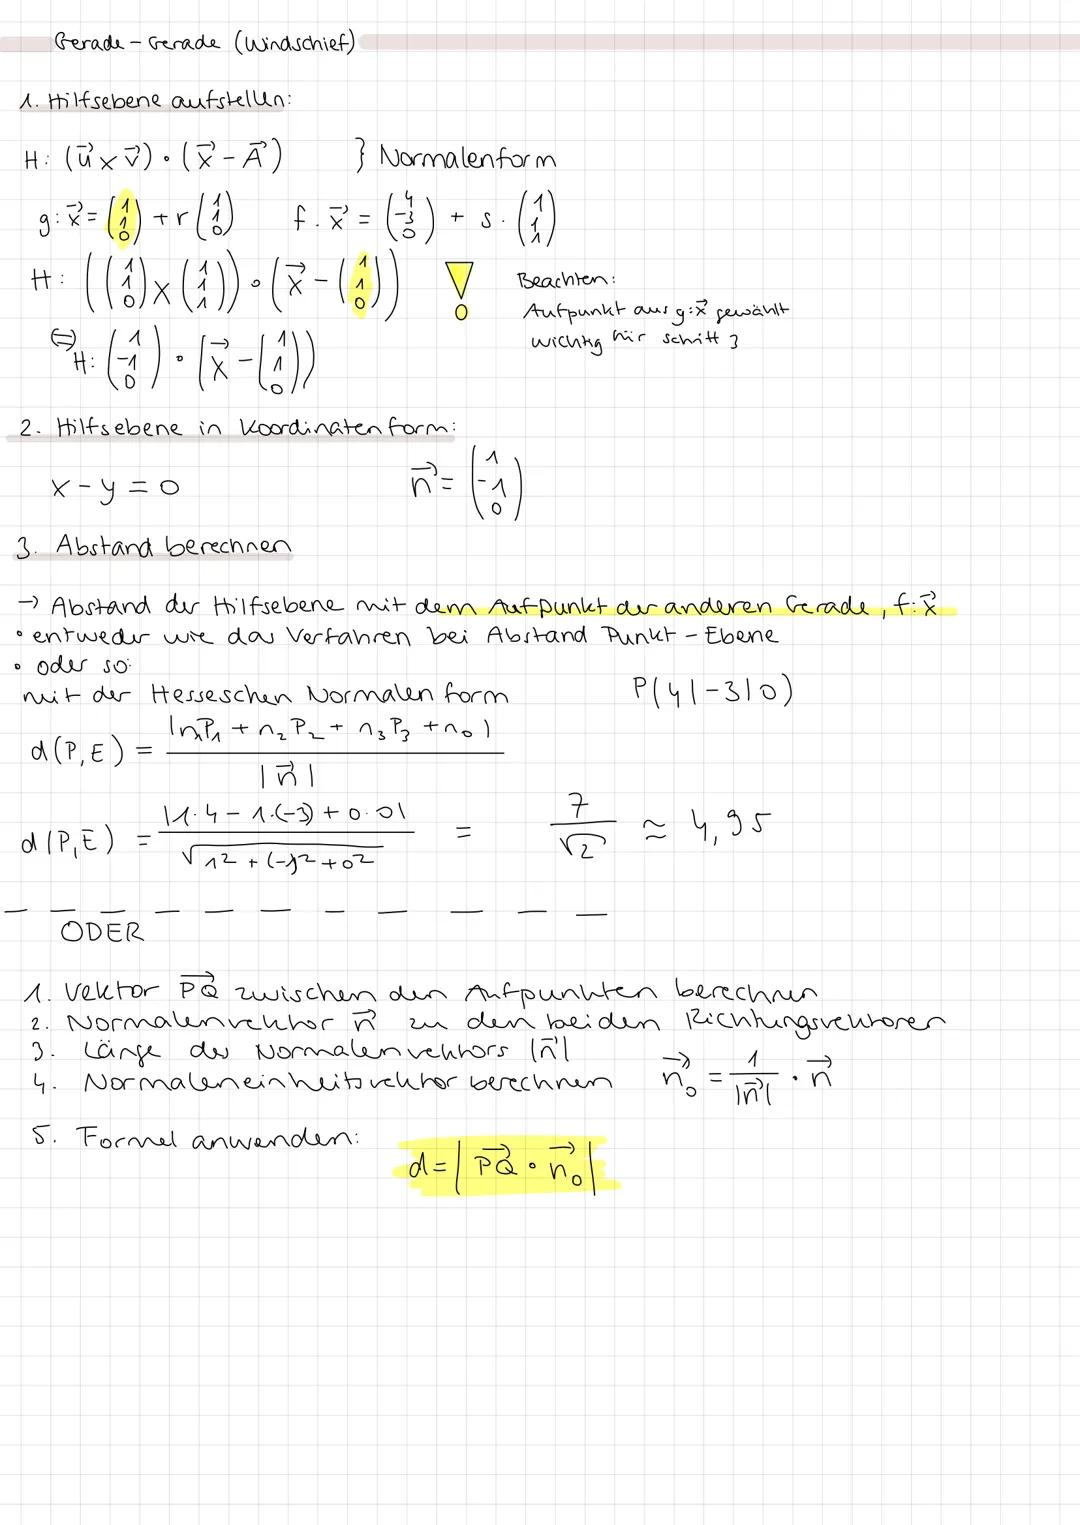 Gerade - Gerade (Windschief)
1. Hilfsebene aufstellen:
H: (u⃗ × v⃗) ∘ (x⃗ - A⃗) } Normalenform
g: x⃗ = (1 1 0) + r (1 1 0) f: x⃗ = (4 -3 0) + s · (1 1 1)
H: ((1 1 0) × (1 1 1)) ∘ (x⃗ - (1 1 0)) !
Beachten:
Aufpunkt aus g: x⃗ gewählt
wichtig für schritt 3
⇔ H: (1 -1 0) ∘ (x⃗ - (1 1 0))
2. Hilfsebene in Koordinatenform:
x - y = 0 n⃗ = (1 -1 0)
3. Abstand berechnen
→ Abstand der Hilfsebene mit dem Aufpunkt der anderen Gerade, f: x⃗
• entweder wie das Verfahren bei Abstand Punkt - Ebene
• oder so:
mit der Hesseschen Normalen form P(4|-3|0)
d(P,E) = |n₁P₁ + n₂P₂ + n₃P₃ + n₀| / |n⃗|
d(P,E) = |1·4 - 1·(-3) + 0·0| / √(1² + (-1)² + 0²) = 7/√2 ≈ 4,95
ODER
1. Vektor PQ⃗ zwischen den Aufpunkten berechnen
2. Normalenvektor n⃗ zu den beiden Richtungsvektoren
3. Länge des Normalenvektors |n⃗|
4. Normaleneinheitsvektor berechnen n⃗₀ = 1/|n⃗| · n⃗
5. Formel anwenden:
d = | PQ⃗ ∘ n⃗₀ |